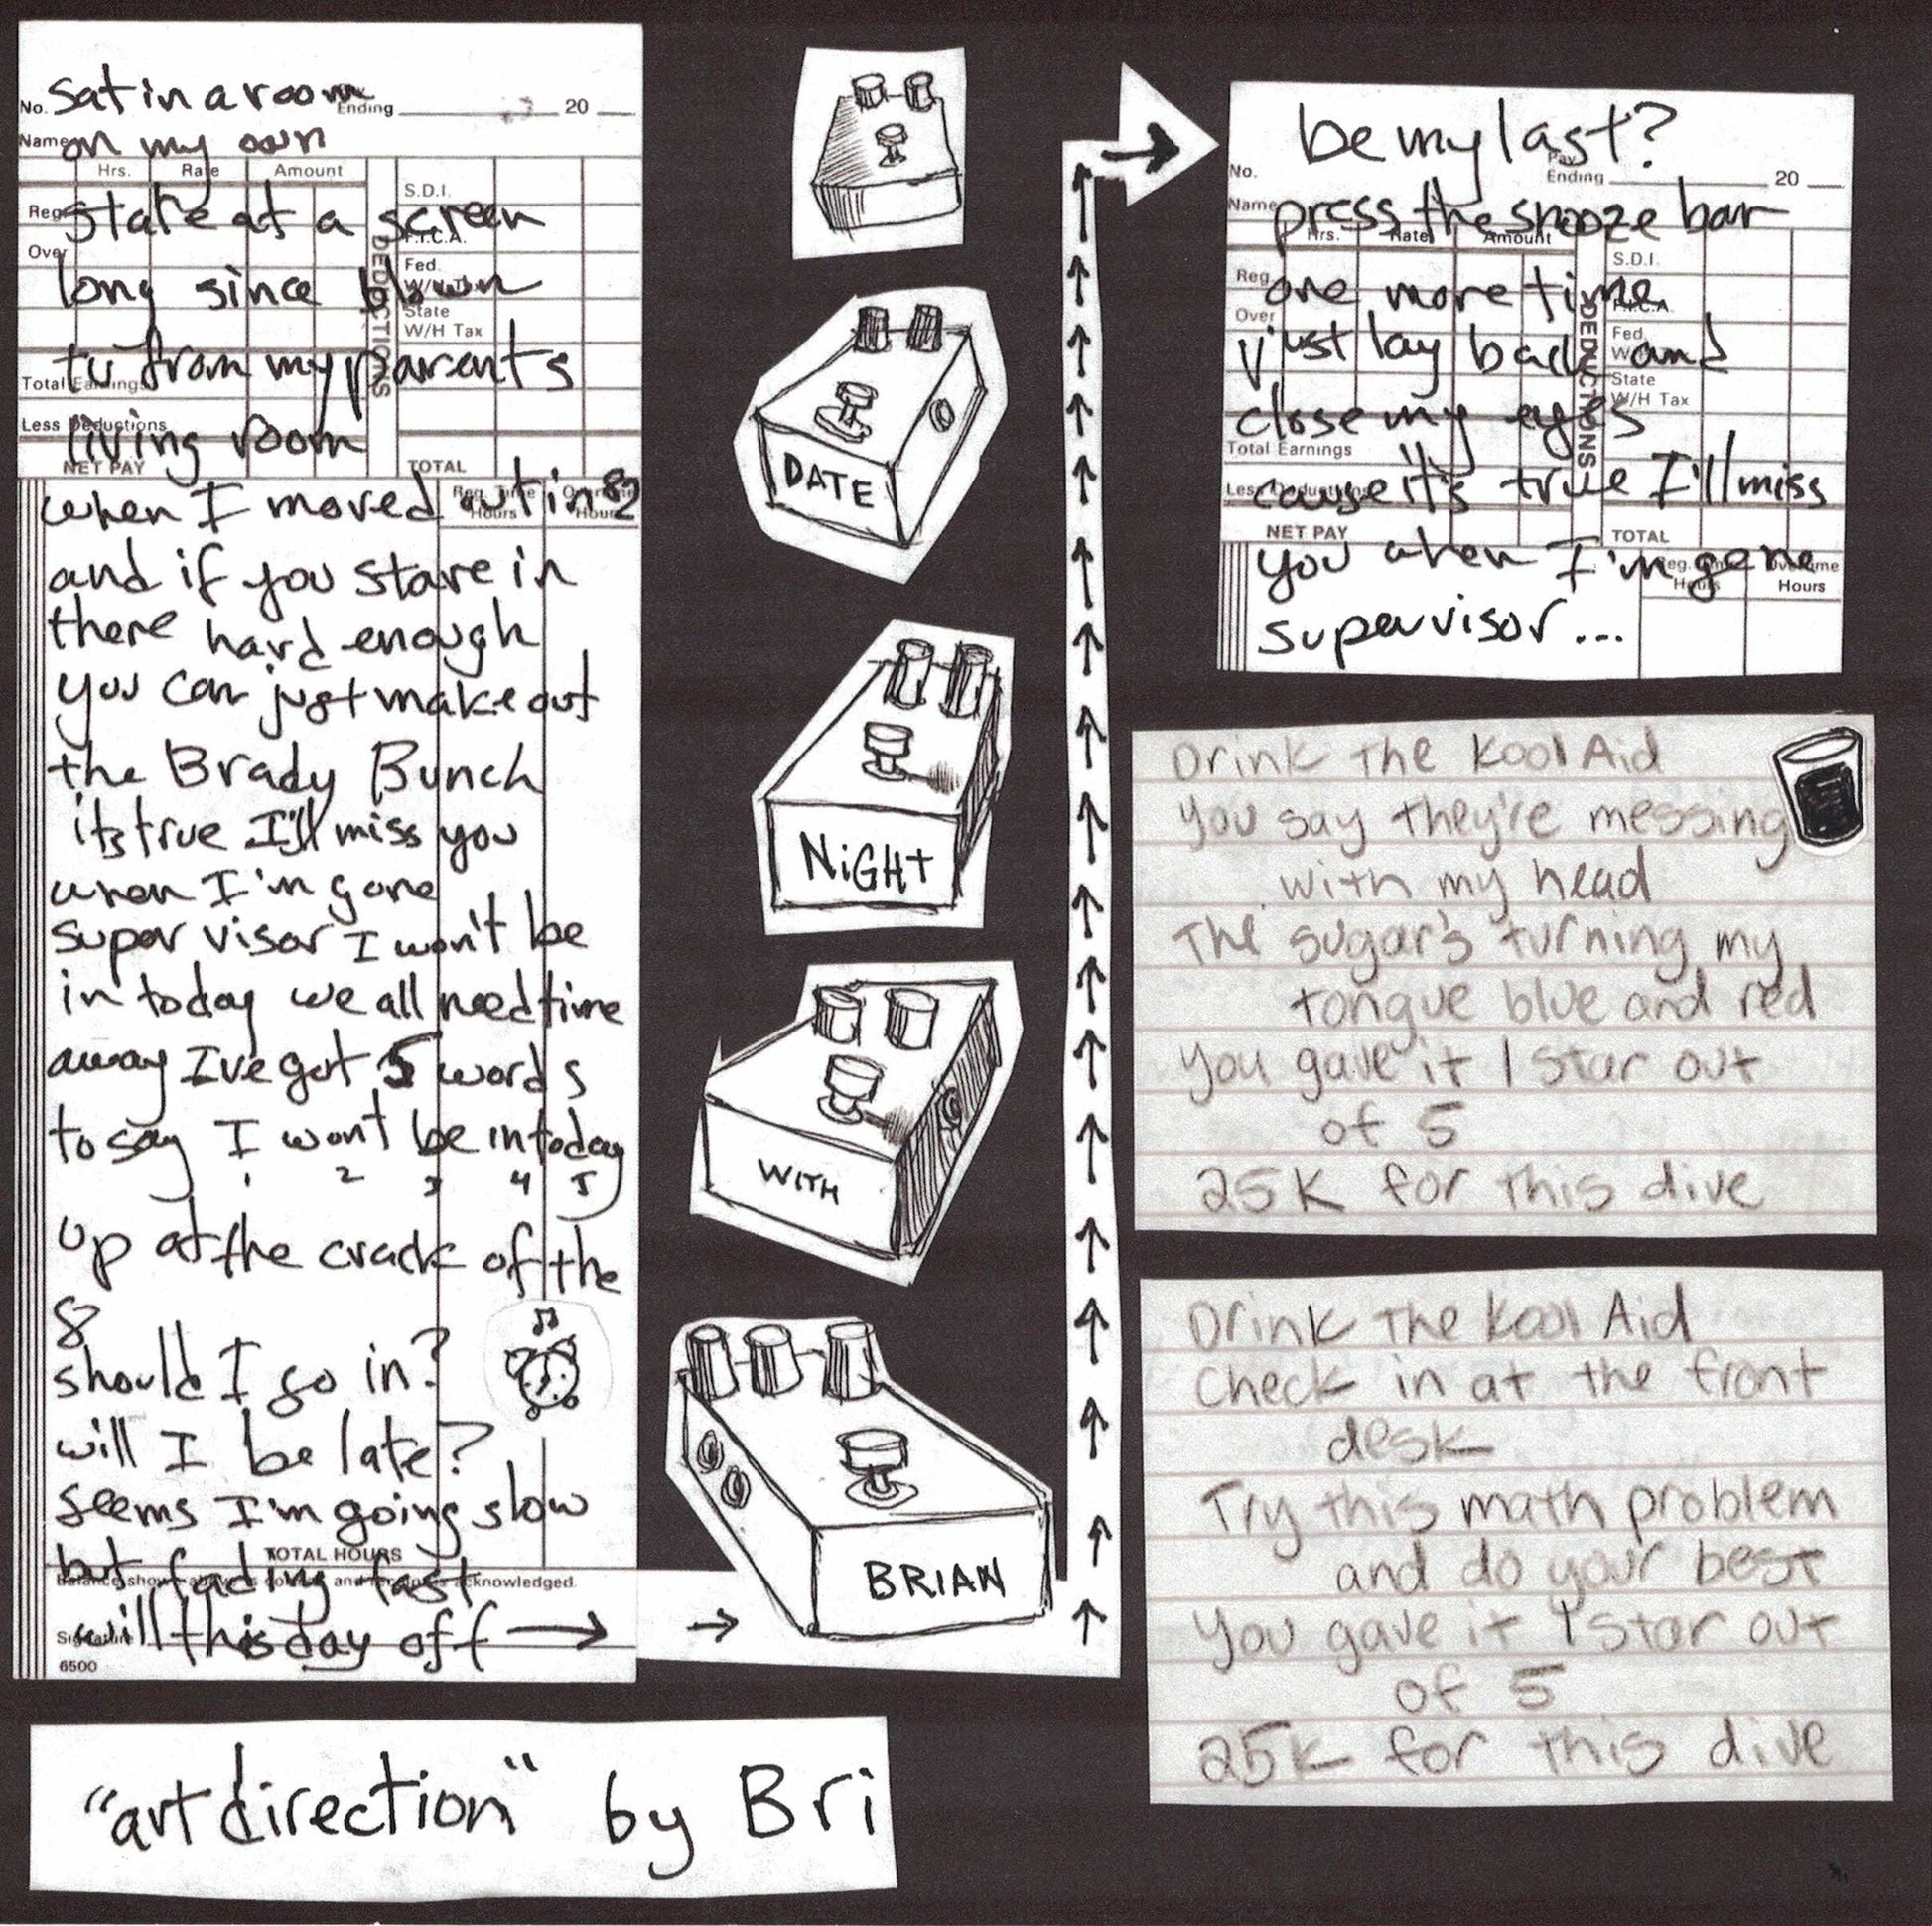 sat in a room
on my own
stare at a screen
long since blown
tv from my parents
living room
when I moved out in 82
and if you stare in
there hard enough
you can just make out
the Brady Bunch
its true I'll miss you
when I'm gone
supervisor I won't be
in today we all need time
away I've got 5 words
to say I wont be in today
1 2 3 4 5
up at the crack of the
8
should I go in?
will I be late?
seems I'm going slow
but fading fast
will this day off →
No. Ending 20
Name
Hrs. Rate Amount
Reg.
Over
Total Earnings
Less Deductions
NET PAY
DEDUCTIONS
S.D.I.
F.I.C.A.
Fed.
W/H Tax
State
W/H Tax
TOTAL
Reg. Time Overtime
Hours Hours
TOTAL HOURS
acknowledged.
Signature
6500
DATE
NiGHT
WITH
BRIAN
be my last?
press the snooze bar
one more time
just lay back and
close my eyes
cause it's true I'll miss
you when I'm gone
supervisor...
No. Pay
Ending 20
Name
Hrs. Rate Amount
Reg.
Over
Total Earnings
Less Deductions
NET PAY
DEDUCTIONS
S.D.I.
F.I.C.A.
Fed.
State
W/H Tax
TOTAL
Reg. Time Overtime
Hours Hours
Drink The Kool Aid
You say they're messing
with my head
The sugar's turning my
tongue blue and red
You gave it 1 star out
of 5
25K for this dive
Drink The Kool Aid
Check in at the front
desk
Try this math problem
and do your best
You gave it 1 star out
of 5
25K for this dive
"art direction" by Bri